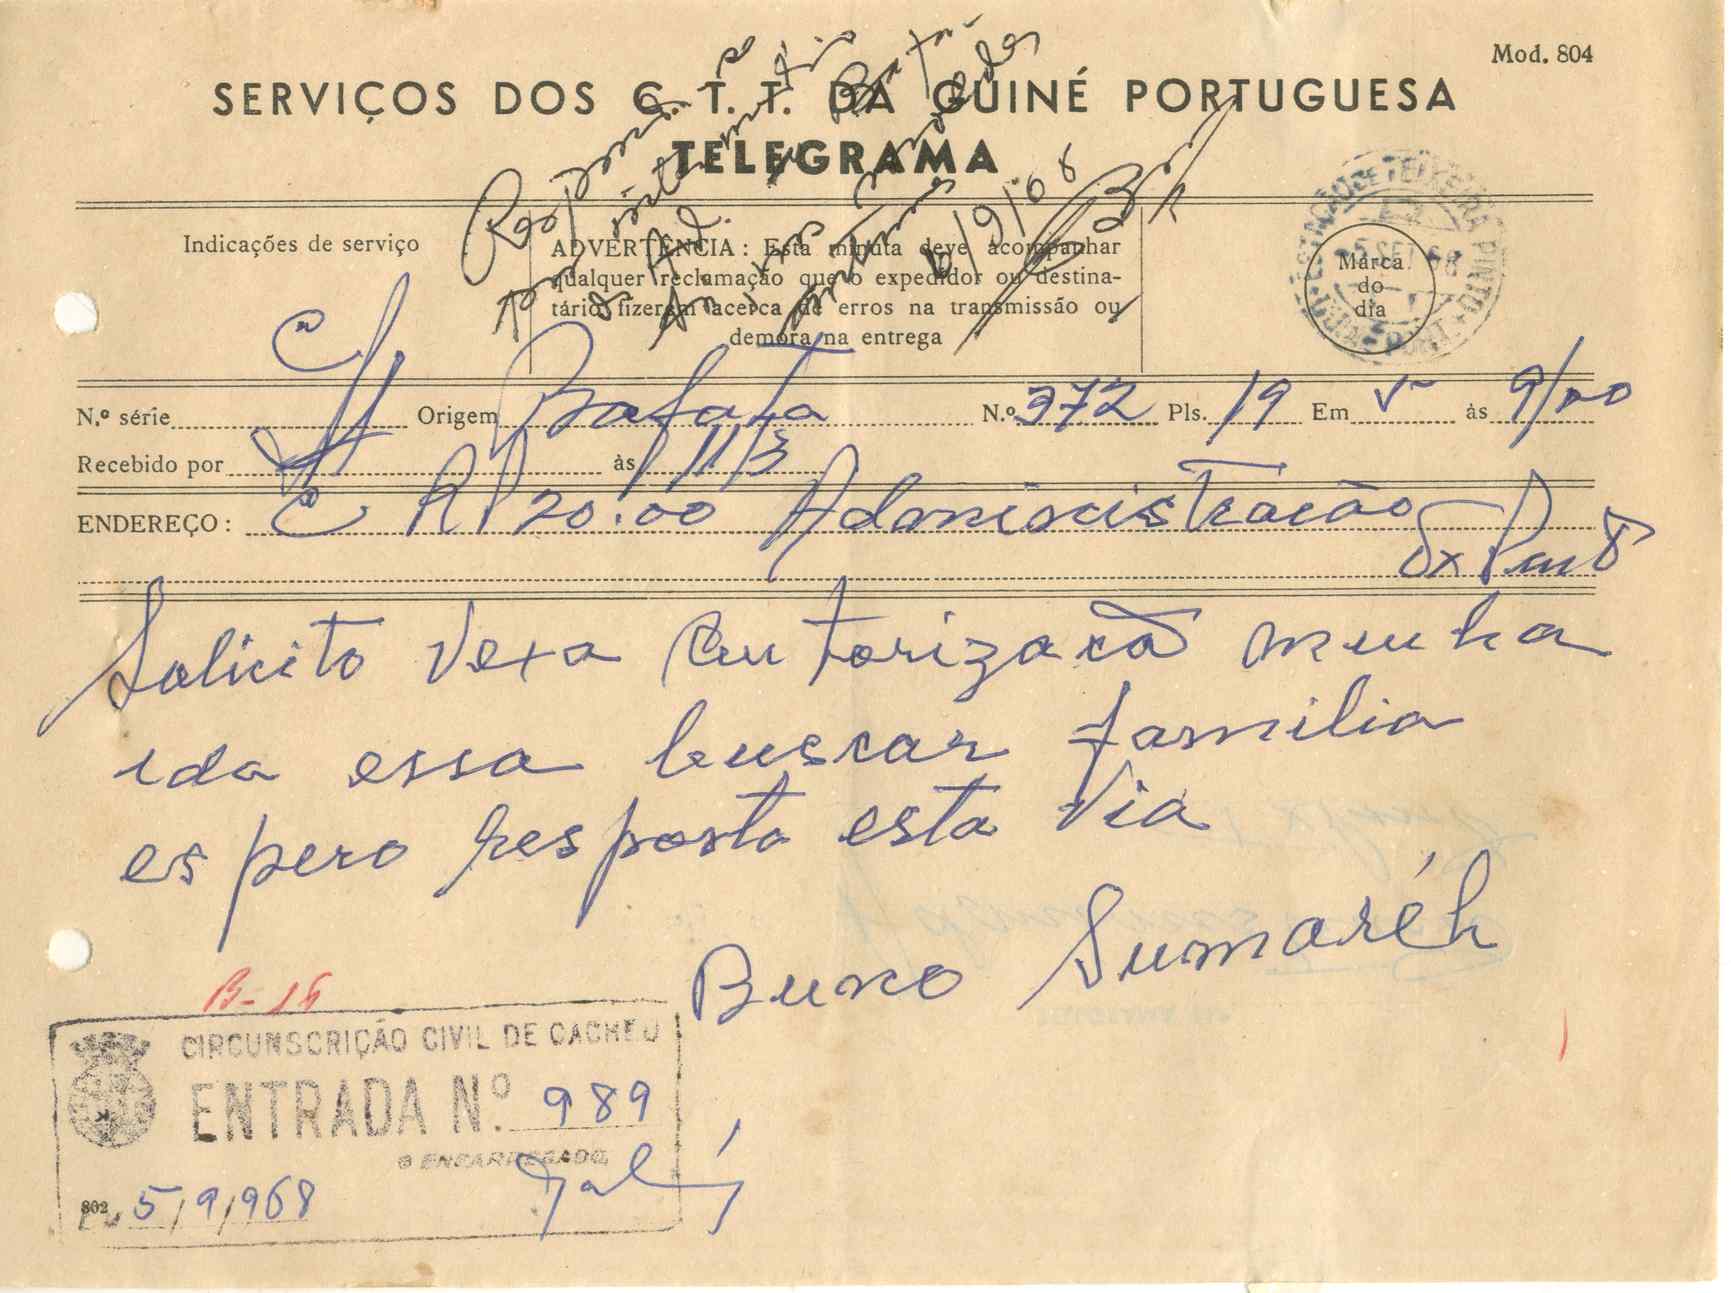 Mod. 804
SERVIÇOS DOS C. T. T. DA GUINÉ PORTUGUESA
TELEGRAMA
Indicações de serviço
ADVERTÊNCIA: Esta minuta deve acompanhar
qualquer reclamação que o expedidor ou destina-
tário fizerem acerca de erros na transmissão ou
demora na entrega
6/9/68
Marca
do
dia
5 SET 68
N.º série Origem Bafata N.º 372 Pls. 19 Em 5 às 9/00
Recebido por às 11/5
ENDEREÇO: RP 20.00 Administração
Tx Pinto
Solicito Vexa autorizacão minha
ida essa buscar familia
espero resposta esta via
Buno Sumaréh
B-16
CIRCUNSCRIÇÃO CIVIL DE CACHEU
ENTRADA N.º 989
O ENCARREGADO,
802 5/9/968